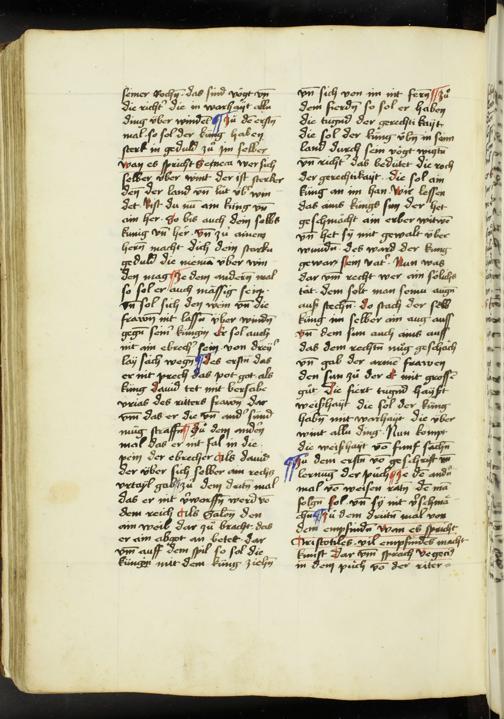 seiner roch · das sind vögt vn̄
die richt' die in warhayt alle
ding über windet ¶ zü dē erstn̄
mal so sol der küng haben
sterk in geduld zü im selber
wan es spricht Seneca wer sich
selber über wint der ist sterker
den der land vn̄ lüt üb' win
det bist du nu am küng vn̄
ain her so bis auch dein selbs
künig vn̄ her · vn̄ zü ainem
hern̄ macht dich dein starke
geduld die meniu über win
den mag ¶ ze dem andern mal
so sol er auch mässig sein ·
vn̄ sol sich den wein vn̄ die
frawn̄ nit lassn̄ über windn̄
gegn sein küngin er sol auch
nit am ebrech' sein von dreÿ'
lay sach wegn̄ ¶ des ersten das
er nit prech das pot got als
küng dauid tet mit bersabe
vrias des ritters frawn̄ dar
vm das er die vn̄ and' sünd
müg straffn̄ ¶ zü dem andn̄
mal das er nit fal in die
pein der ebrecher als dauid
der über sich selber am rechtz
vrtayl gab ¶ zü dem dritn̄ mal
das er nit v'worffn̄ werd vō
dem reich als Salon̄ den
ain weil dar zü bracht das
er ain abgot an betet dar
vm auff dem spil so sol die
küngin mit dem küng ziehn̄
vn̄ sich von im nit fern̄ ¶ zü
dem fierdn̄ so sol er haben
die tugnd der gerechtikayt
die sol der küng übn̄ in seim
land durch sein vögt wigtn̄
vn̄ richt' das bedütet die roch
der gerechtikait · die sol ain
küng an im han wir lessen
das ains küngs sun der het
geschmächt ain erber witwn̄
vn̄ het sÿ mit gewalt über
wundn̄ · des ward der küng
gewar sein vat' · Nun was
dar vm recht wer ain sölichs
tät · dem solt man sein augn̄
auß stechn̄ · do stach der selb
küng im selber ain aug auff
vn̄ dem sun auch ains auff
das dem rechtn̄ nüg geschäch
vn̄ gab der armē frawen
den sun zü der E mit grosse'
güt die fiert tugnd haÿst
weißhayt die sol der küng
habn̄ mit warhayt die über
wint alle ding · Nun kompt
die weißhayt vō fünf sachn̄
¶ zü dem erstn̄ vō geschrift vn̄
lernūg der püch ¶ ze dē and'n
mal vō weisen rätn̄ dē ma
folgn̄ sol vn̄ sÿ nit v'schmä
chn̄ ¶ zü dem dritn̄ mal von
dem empfindn̄ wan es spricht
Aristotiles · vil empfindes macht
kunst dar vm sprach vegeci'
in dem püch vō der riter=